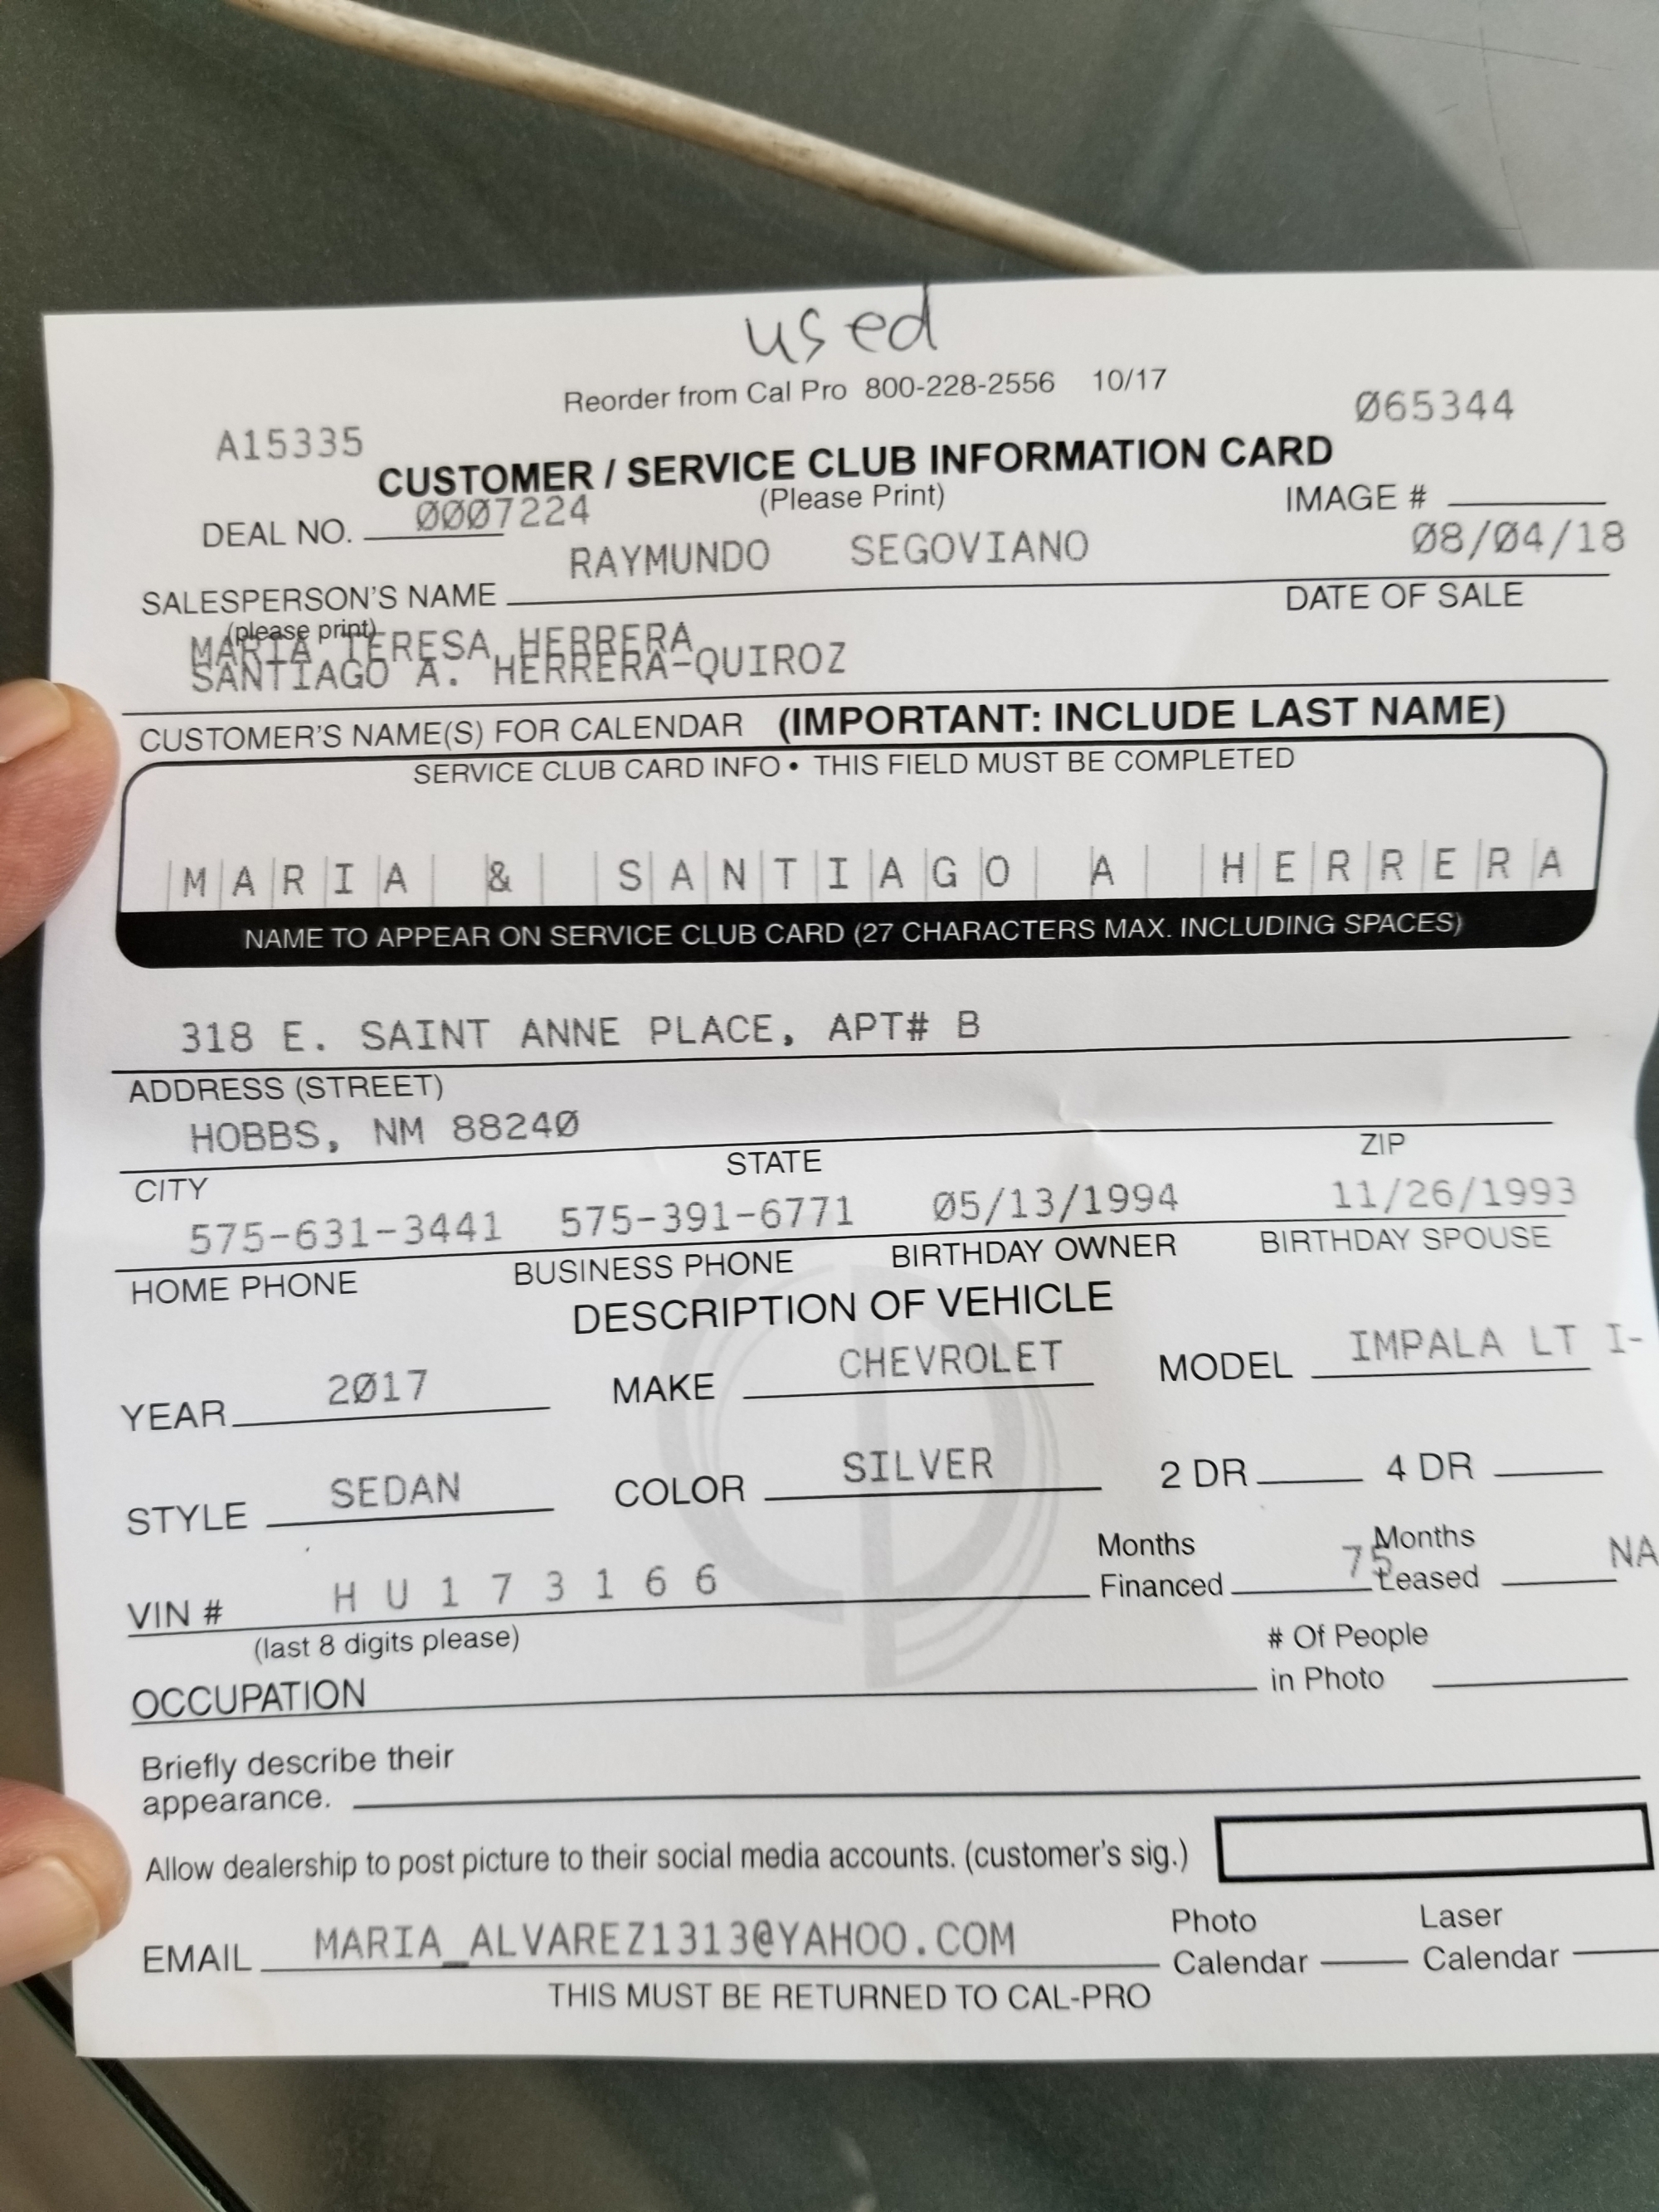 used
Reorder from Cal Pro 800-228-2556 10/17
A15335 Ø65344
CUSTOMER / SERVICE CLUB INFORMATION CARD
(Please Print)
DEAL NO. ØØØ7224 IMAGE #
RAYMUNDO SEGOVIANO Ø8/Ø4/18
SALESPERSON'S NAME DATE OF SALE
(please print)
MARIA TERESA HERRERA
SANTIAGO A. HERRERA-QUIROZ
CUSTOMER'S NAME(S) FOR CALENDAR (IMPORTANT: INCLUDE LAST NAME)
SERVICE CLUB CARD INFO • THIS FIELD MUST BE COMPLETED
MARIA & SANTIAGO A HERRERA
NAME TO APPEAR ON SERVICE CLUB CARD (27 CHARACTERS MAX. INCLUDING SPACES)
318 E. SAINT ANNE PLACE, APT# B
ADDRESS (STREET)
HOBBS, NM 8824Ø
CITY STATE ZIP
575-631-3441 575-391-6771 Ø5/13/1994 11/26/1993
HOME PHONE BUSINESS PHONE BIRTHDAY OWNER BIRTHDAY SPOUSE
DESCRIPTION OF VEHICLE
YEAR 2Ø17 MAKE CHEVROLET MODEL IMPALA LT I-
STYLE SEDAN COLOR SILVER 2 DR 4 DR
VIN # HU173166 Months Financed 75 Months Leased NA
(last 8 digits please)
OCCUPATION # Of People in Photo
Briefly describe their
appearance.
Allow dealership to post picture to their social media accounts. (customer's sig.)
EMAIL MARIA_ALVAREZ1313@YAHOO.COM Photo Calendar Laser Calendar
THIS MUST BE RETURNED TO CAL-PRO